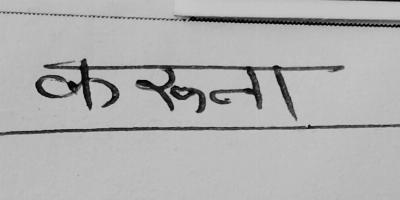 करूना